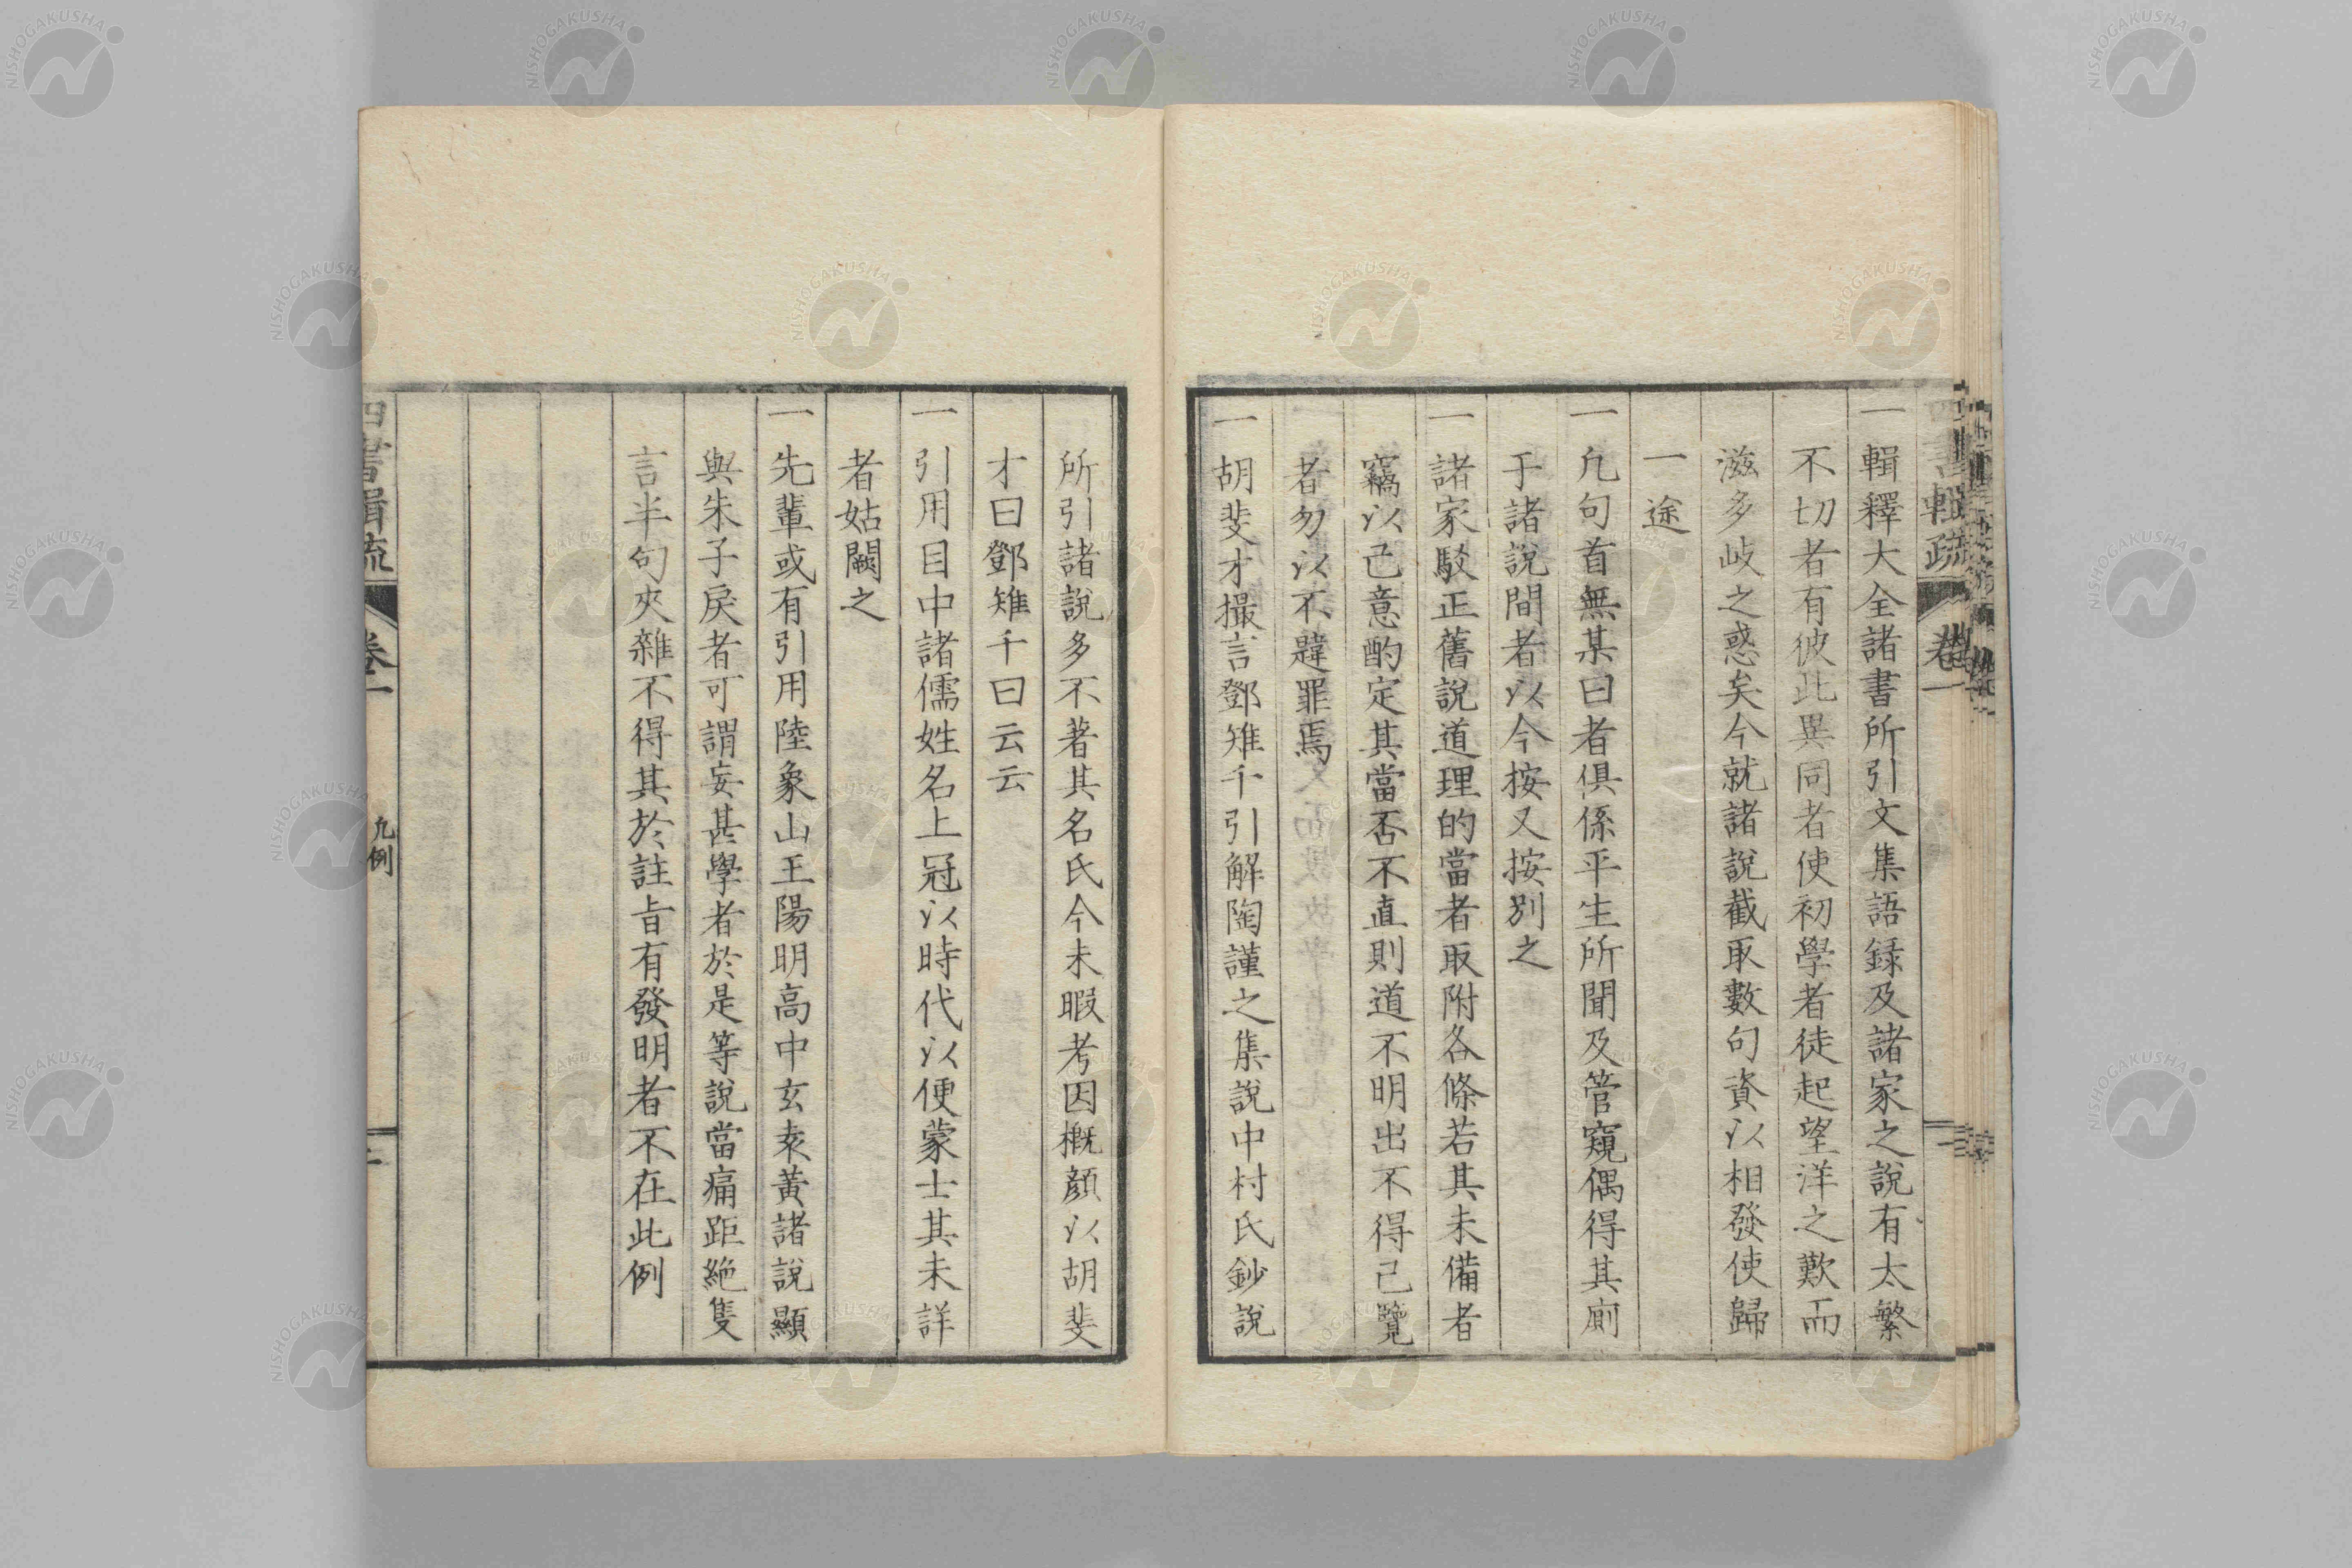 一輯釋大全諸書所引文集語録及諸家之說有太繁
不切者有彼此異同者使初學者徒起望洋之歎而
滋多岐之惑矣今就諸說截取數句資以相發使歸
一途
一凡句首無某曰者俱係平生所聞及管窺偶得其廁
于諸說間者以今按又按別之
一諸家駁正舊說道理的當者取附各條若其未備者
竊以己意酌定其當否不直則道不明出不得已覽
者勿以不韙罪焉
一胡斐才撮言鄧雉千引解陶謹之集說中村氏鈔說
所引諸說多不著其名氏今未暇考因概顔以胡斐
才曰鄧雉千曰云云
一引用目中諸儒姓名上冠以時代以便蒙士其未詳
者姑闕之
一先輩或有引用陸象山王陽明高中玄袁黃諸說顯
與朱子戾者可謂妄甚學者於是等說當痛距絶隻
言半句夾雜不得其於註旨有發明者不在此例
四書輯疏
卷一
凡例
二
四書輯疏
卷一
NISHOGAKUSHA